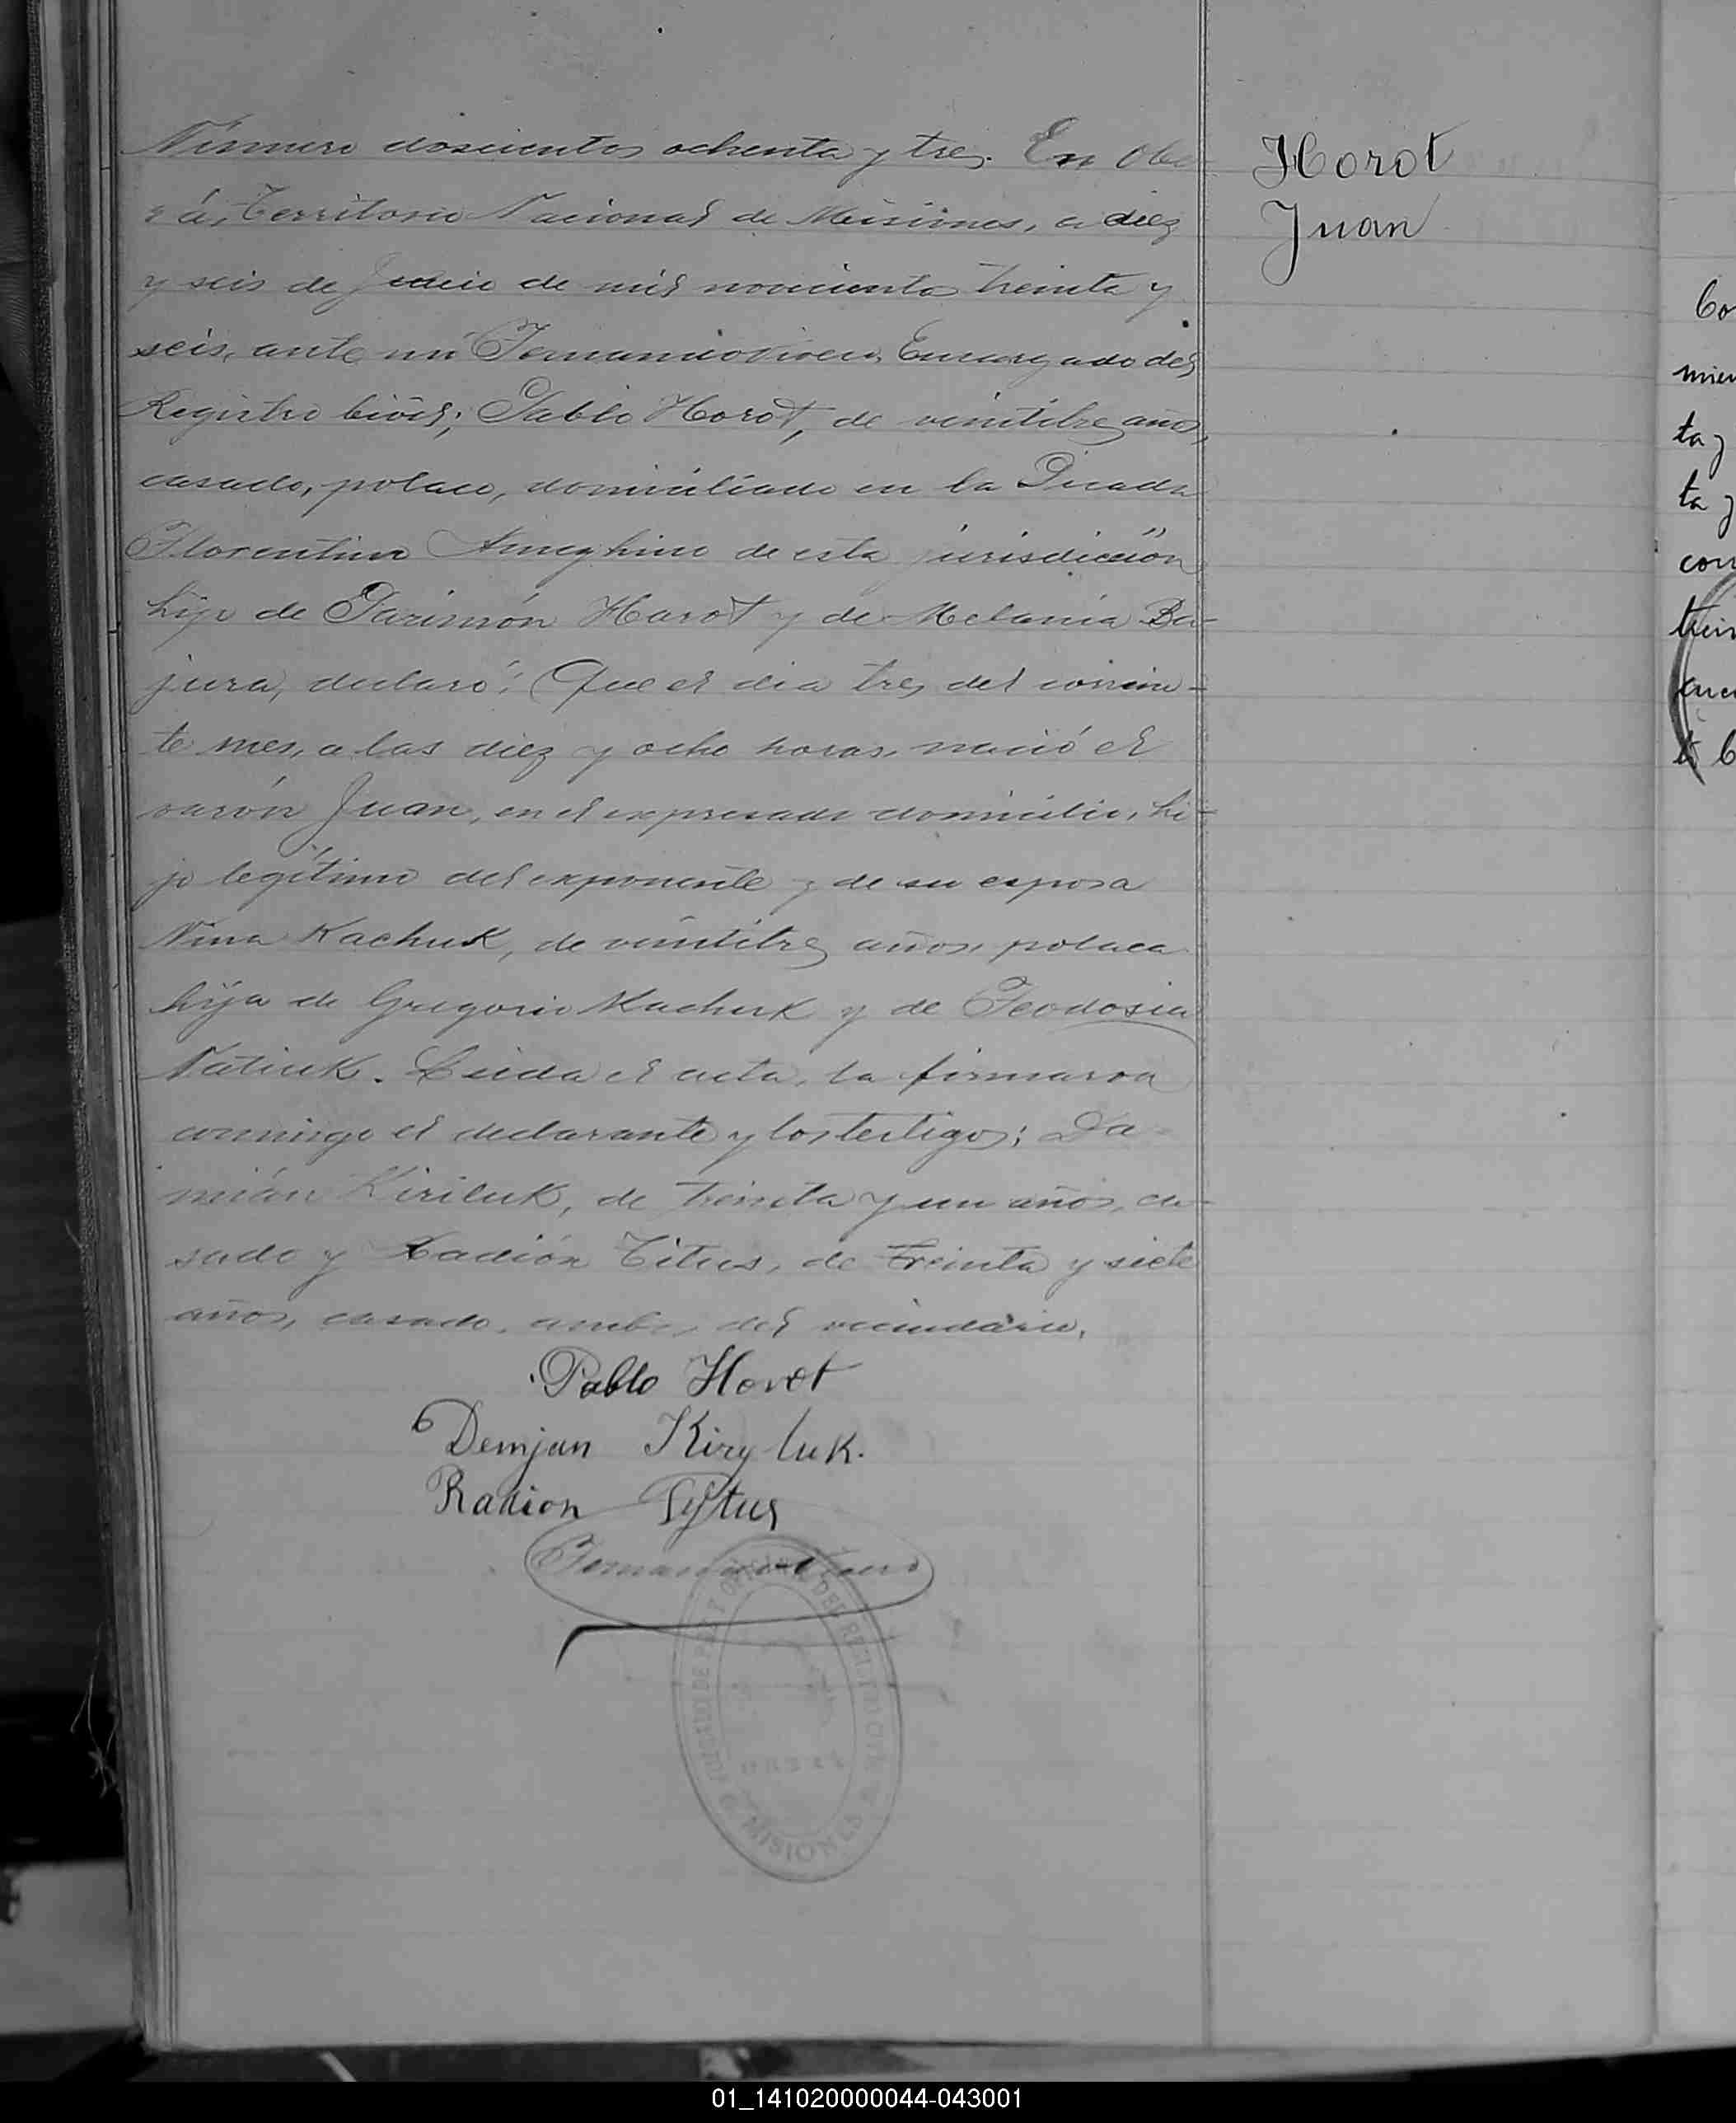 Número doscientos ochenta y tres. En Obe-
rá, Territorio Nacional de Misiones, a diez
y seis de Junio de mil novecientos treinta y
seis, ante mí Encargado del
Registro Civil; Pablo Horot, de veintitres años,
casado, polaco, domiciliado en la Picada
Florentino Ameghino de esta jurisdicción
hijo de Horot y de Melania Ba-
jura, declaró: Que el dia tres del corrien-
te mes, a las diez y ocho horas, nació el
varón Juan, en el expresado domicilio, hi-
jo legítimo del exponente y de su esposa
Nina Kachuk, de veintitres años, polaca
hija de Gregorio Kachuk y de Feodosia
Natiuk. Leida el acta, la firmaron
conmigo el declarante y los testigos: Da-
mián Kiriluk, de treinta y un años, ca-
sado y Radión Titus, de treinta y siete
años, casado, ambos del vecindario.
Pablo Horot
Demjan Kiryluk.
Radion Tytus
MISIONES
Horot
Juan
Co
mien
ta y
ta y
con
trein
01_141020000044-043001